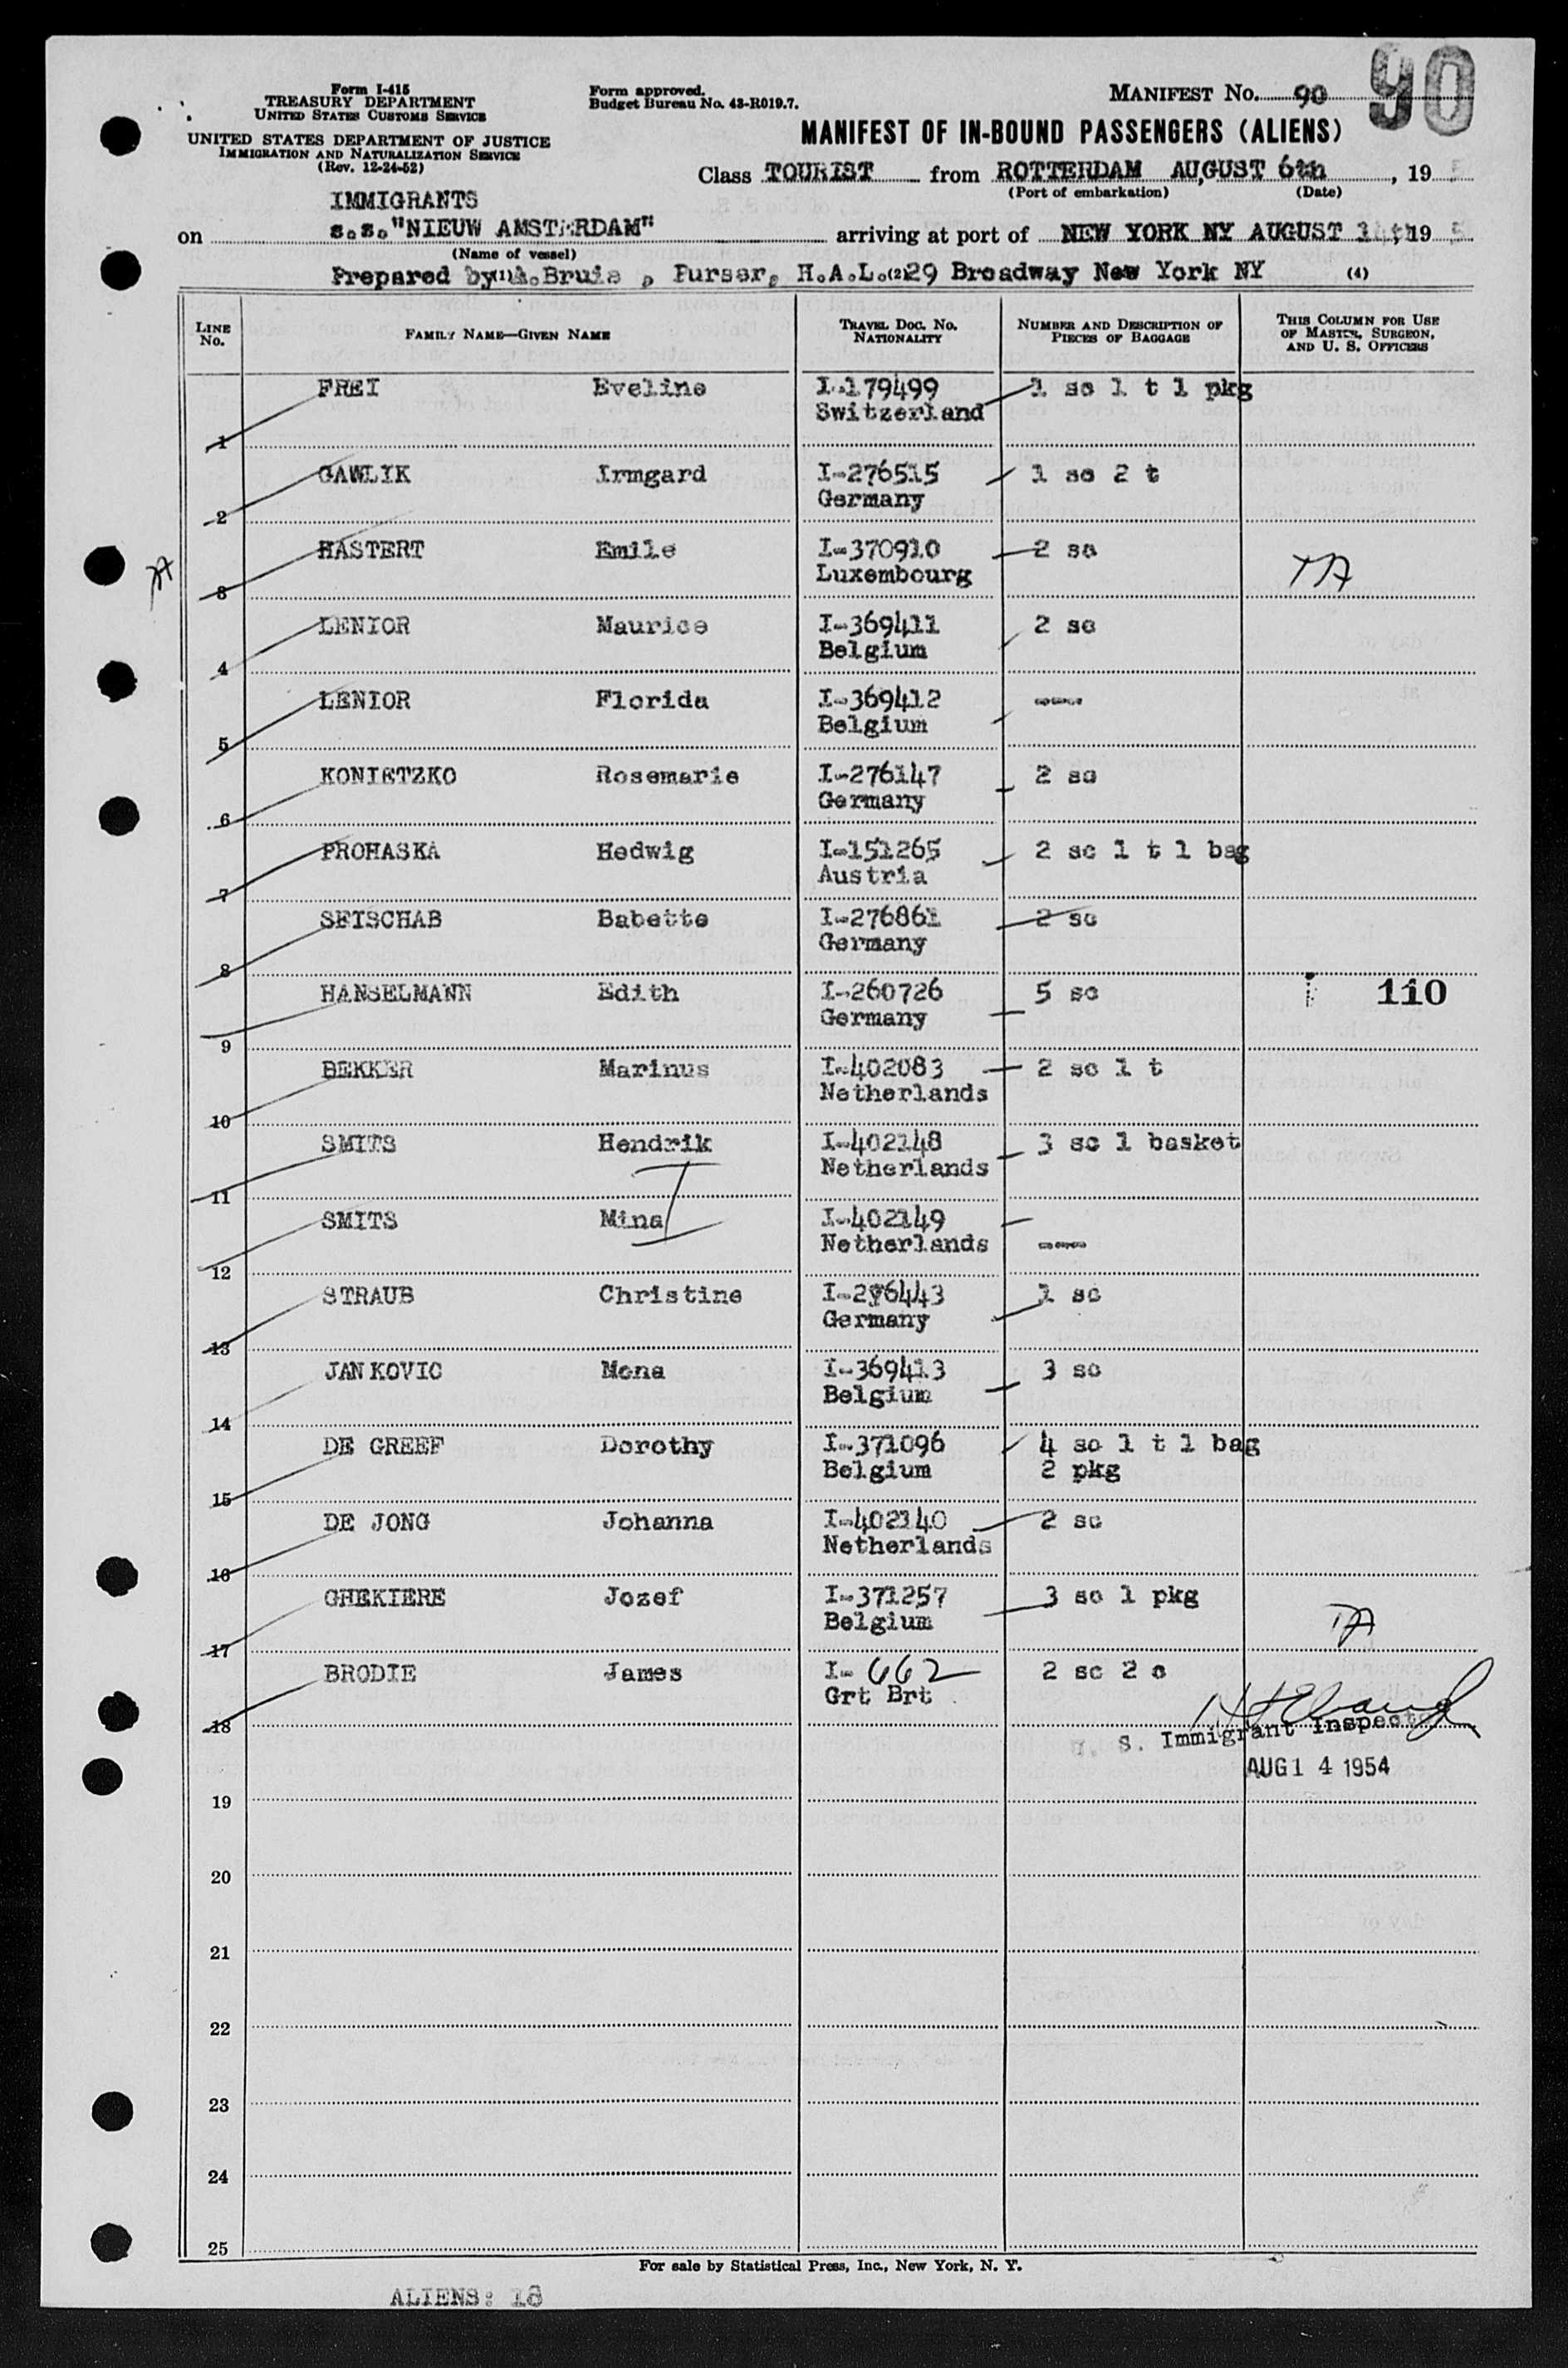 90
Form I-415
TREASURY DEPARTMENT
UNITED STATES CUSTOMS SERVICE
UNITED STATES DEPARTMENT OF JUSTICE
IMMIGRATION AND NATURALIZATION SERVICE
(Rev. 12-24-52)
Form approved.
Budget Bureau No. 43-R019.7.
MANIFEST NO. 90
MANIFEST OF IN-BOUND PASSENGERS (ALIENS)
Class TOURIST from ROTTERDAM AUGUST 6th, 19
(Port of embarkation) (Date)
IMMIGRANTS
on s.s. "NIEUW AMSTERDAM" arriving at port of NEW YORK NY AUGUST 14th, 19
(Name of vessel)
Prepared by (1) A.Bruis , Purser, H.A.L. (2) 29 Broadway New York NY (4)
LINE NO. FAMILY NAME—GIVEN NAME TRAVEL DOC. NO. NATIONALITY NUMBER AND DESCRIPTION OF PIECES OF BAGGAGE THIS COLUMN FOR USE OF MASTER, SURGEON, AND U. S. OFFICERS
1 FREI Eveline I-179499 1 sc 1 t 1 pkg
Switzerland
2 GAWLIK Irmgard I-276515 1 sc 2 t
Germany
3 HASTERT Emile I-370910 2 sc TA
Luxembourg
4 LENIOR Maurice I-369411 2 sc
Belgium
5 LENIOR Florida I-369412 ----
Belgium
6 KONIETZKO Rosemarie I-276147 2 sc
Germany
7 PROHASKA Hedwig I-151265 2 sc 1 t 1 bag
Austria
8 SEISCHAB Babette I-276861 2 sc
Germany
9 HANSELMANN Edith I-260726 5 sc 110
Germany
10 BEKKER Marinus I-402083 2 sc 1 t
Netherlands
11 SMITS Hendrik I-402148 3 sc 1 basket
Netherlands
I
12 SMITS Mina I-402149
Netherlands ----
13 STRAUB Christine I-276443 1 sc
Germany
14 JANKOVIC Mona I-369413 3 sc
Belgium
15 DE GREEF Dorothy I-371096 4 sc 1 t 1 bag
Belgium 2 pkg
16 DE JONG Johanna I-402140 2 sc
Netherlands
17 GHEKIERE Jozef I-371257 3 sc 1 pkg TA
Belgium
18 BRODIE James I- 662 2 sc 2 c
Grt Brt
U. S. Immigrant Inspector
AUG 14 1954
19
20
21
22
23
24
25
For sale by Statistical Press, Inc., New York, N. Y.
ALIENS: 18